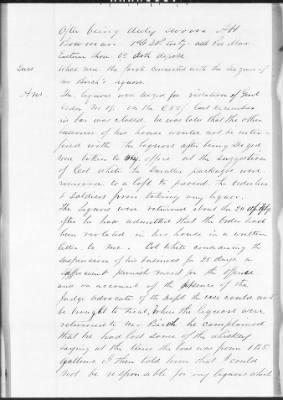 After being duly sworn A H
Bowman 1st Lt Arty. and Pro Mar.
Eastern Shore doth depose
Ques What were the facts connected with the seizure of
Mr Birch's liquors
Ans The liquors were seized for violation of Genl
Order No
his bar was closed, he was told that the other
business of his house would not be inter-
fered with. The liquors after being seized
were taken to my office at the suggestion
of Col White the smaller packages were
removed to a loft to prevent the orderlies
& soldiers from taking any liquor.
The liquors were returned about the 24 of
after he had admitted that the order had
been violated in his house in a written
letter to me. Col White considering the
suspension of his business for 28 days a
sufficient punishment for the offence
and on account of the absence of the
Judge Advocate of the Dept. the case could not
be brought to trial. When the liquors were
returned to Mr Birch he complained
that he had lost some of the whiskey
saying at the time the loss was from 1 to 5
gallons. I then told him that I could
not be responsible for any liquors which